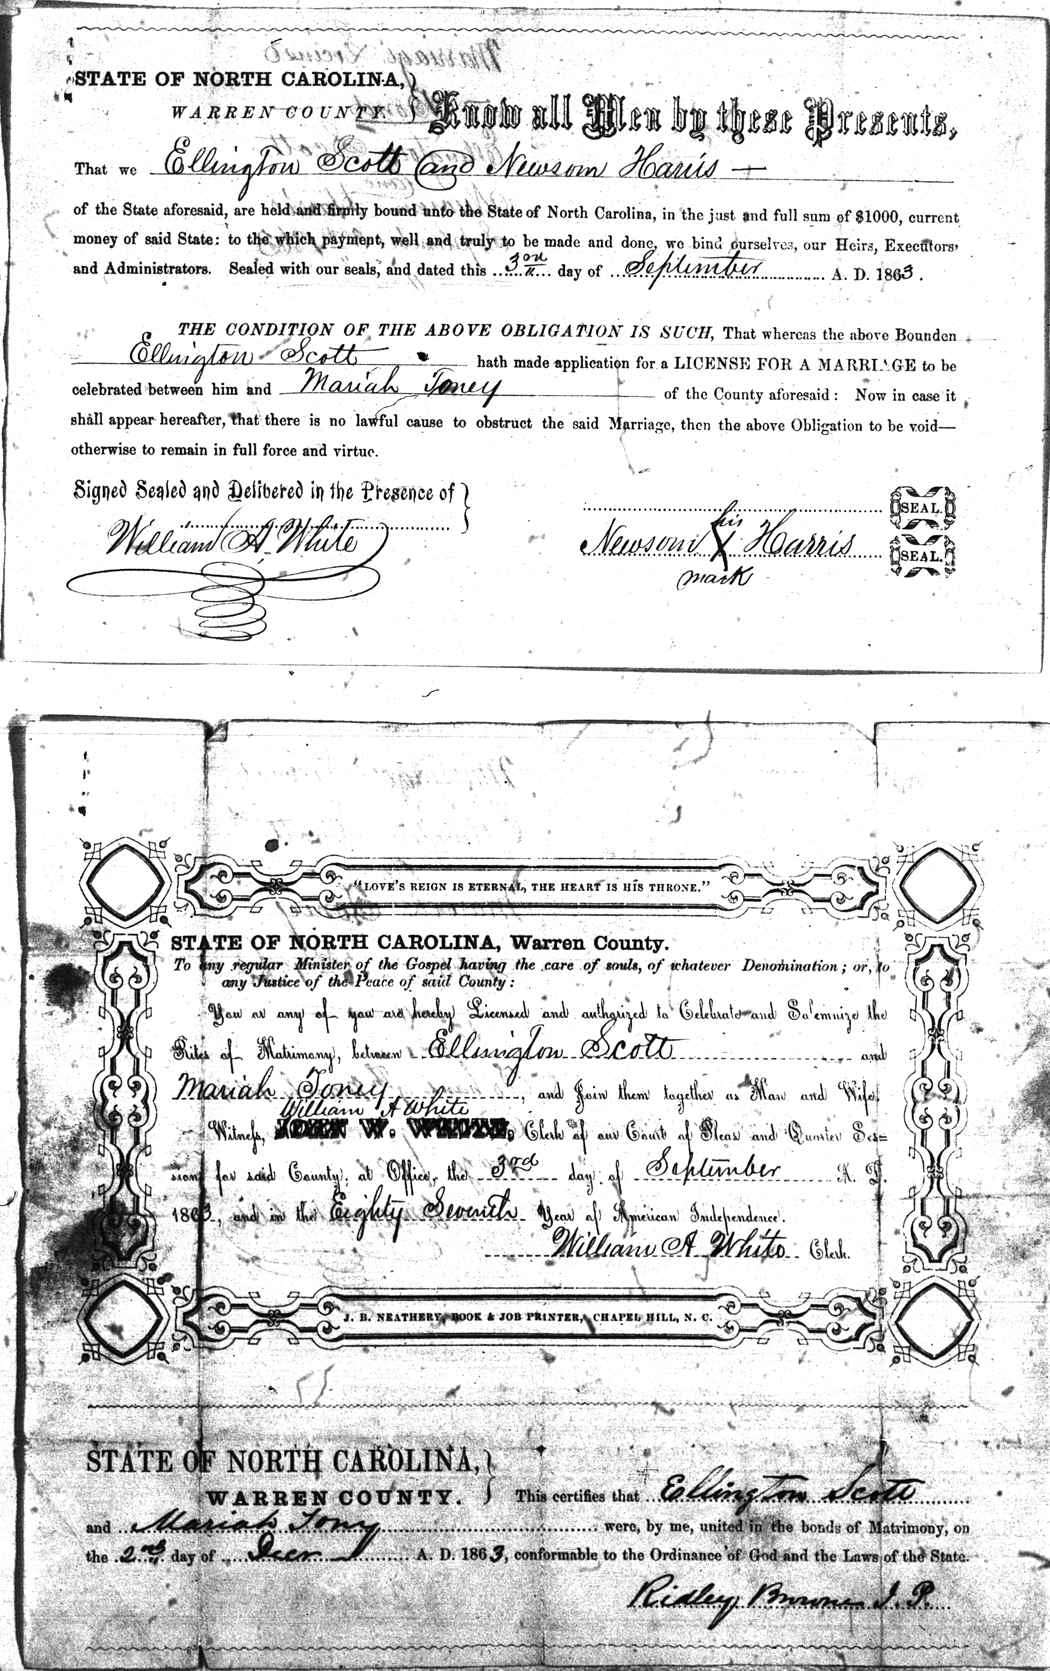 STATE OF NORTH CAROLINA,
WARREN COUNTY.
Know all Men by these Presents,
That we Ellington Scott and Newsom Harris
of the State aforesaid, are held and firmly bound unto the State of North Carolina, in the just and full sum of $1000, current
money of said State: to the which payment, well and truly to be made and done, we bind ourselves, our Heirs, Executors,
and Administrators. Sealed with our seals, and dated this 3rd day of September A. D. 1863.
THE CONDITION OF THE ABOVE OBLIGATION IS SUCH, That whereas the above Bounden
Ellington Scott hath made application for a LICENSE FOR A MARRIAGE to be
celebrated between him and Mariah Toney of the County aforesaid: Now in case it
shall appear hereafter, that there is no lawful cause to obstruct the said Marriage, then the above Obligation to be void—
otherwise to remain in full force and virtue.
Signed Sealed and Delivered in the Presence of
SEAL.
William A. White
his
Newsom X Harris SEAL.
mark
"LOVE'S REIGN IS ETERNAL, THE HEART IS HIS THRONE."
STATE OF NORTH CAROLINA, Warren County.
To any regular Minister of the Gospel having the care of souls, of whatever Denomination; or, to
any Justice of the Peace of said County:
You or any of you are hereby Licensed and authorized to Celebrate and Solemnize the
Rites of Matrimony, between Ellington Scott and
Mariah Toney, and Join them together as Man and Wife.
William A White
Witness, Clerk of our Court of Pleas and Quarter Ses=
sions for said County, at Office, the 3rd day of September A. D.
1863, and in the Eighty Seventh Year of American Independence.
William A White Clerk.
J. B. NEATHERY, BOOK & JOB PRINTER, CHAPEL HILL, N. C.
STATE OF NORTH CAROLINA,
WARREN COUNTY.
This certifies that Ellington Scott
and Mariah Tony were, by me, united in the bonds of Matrimony, on
the 2nd day of Decr A. D. 1863, conformable to the Ordinance of God and the Laws of the State.
Ridley Browne J. P.